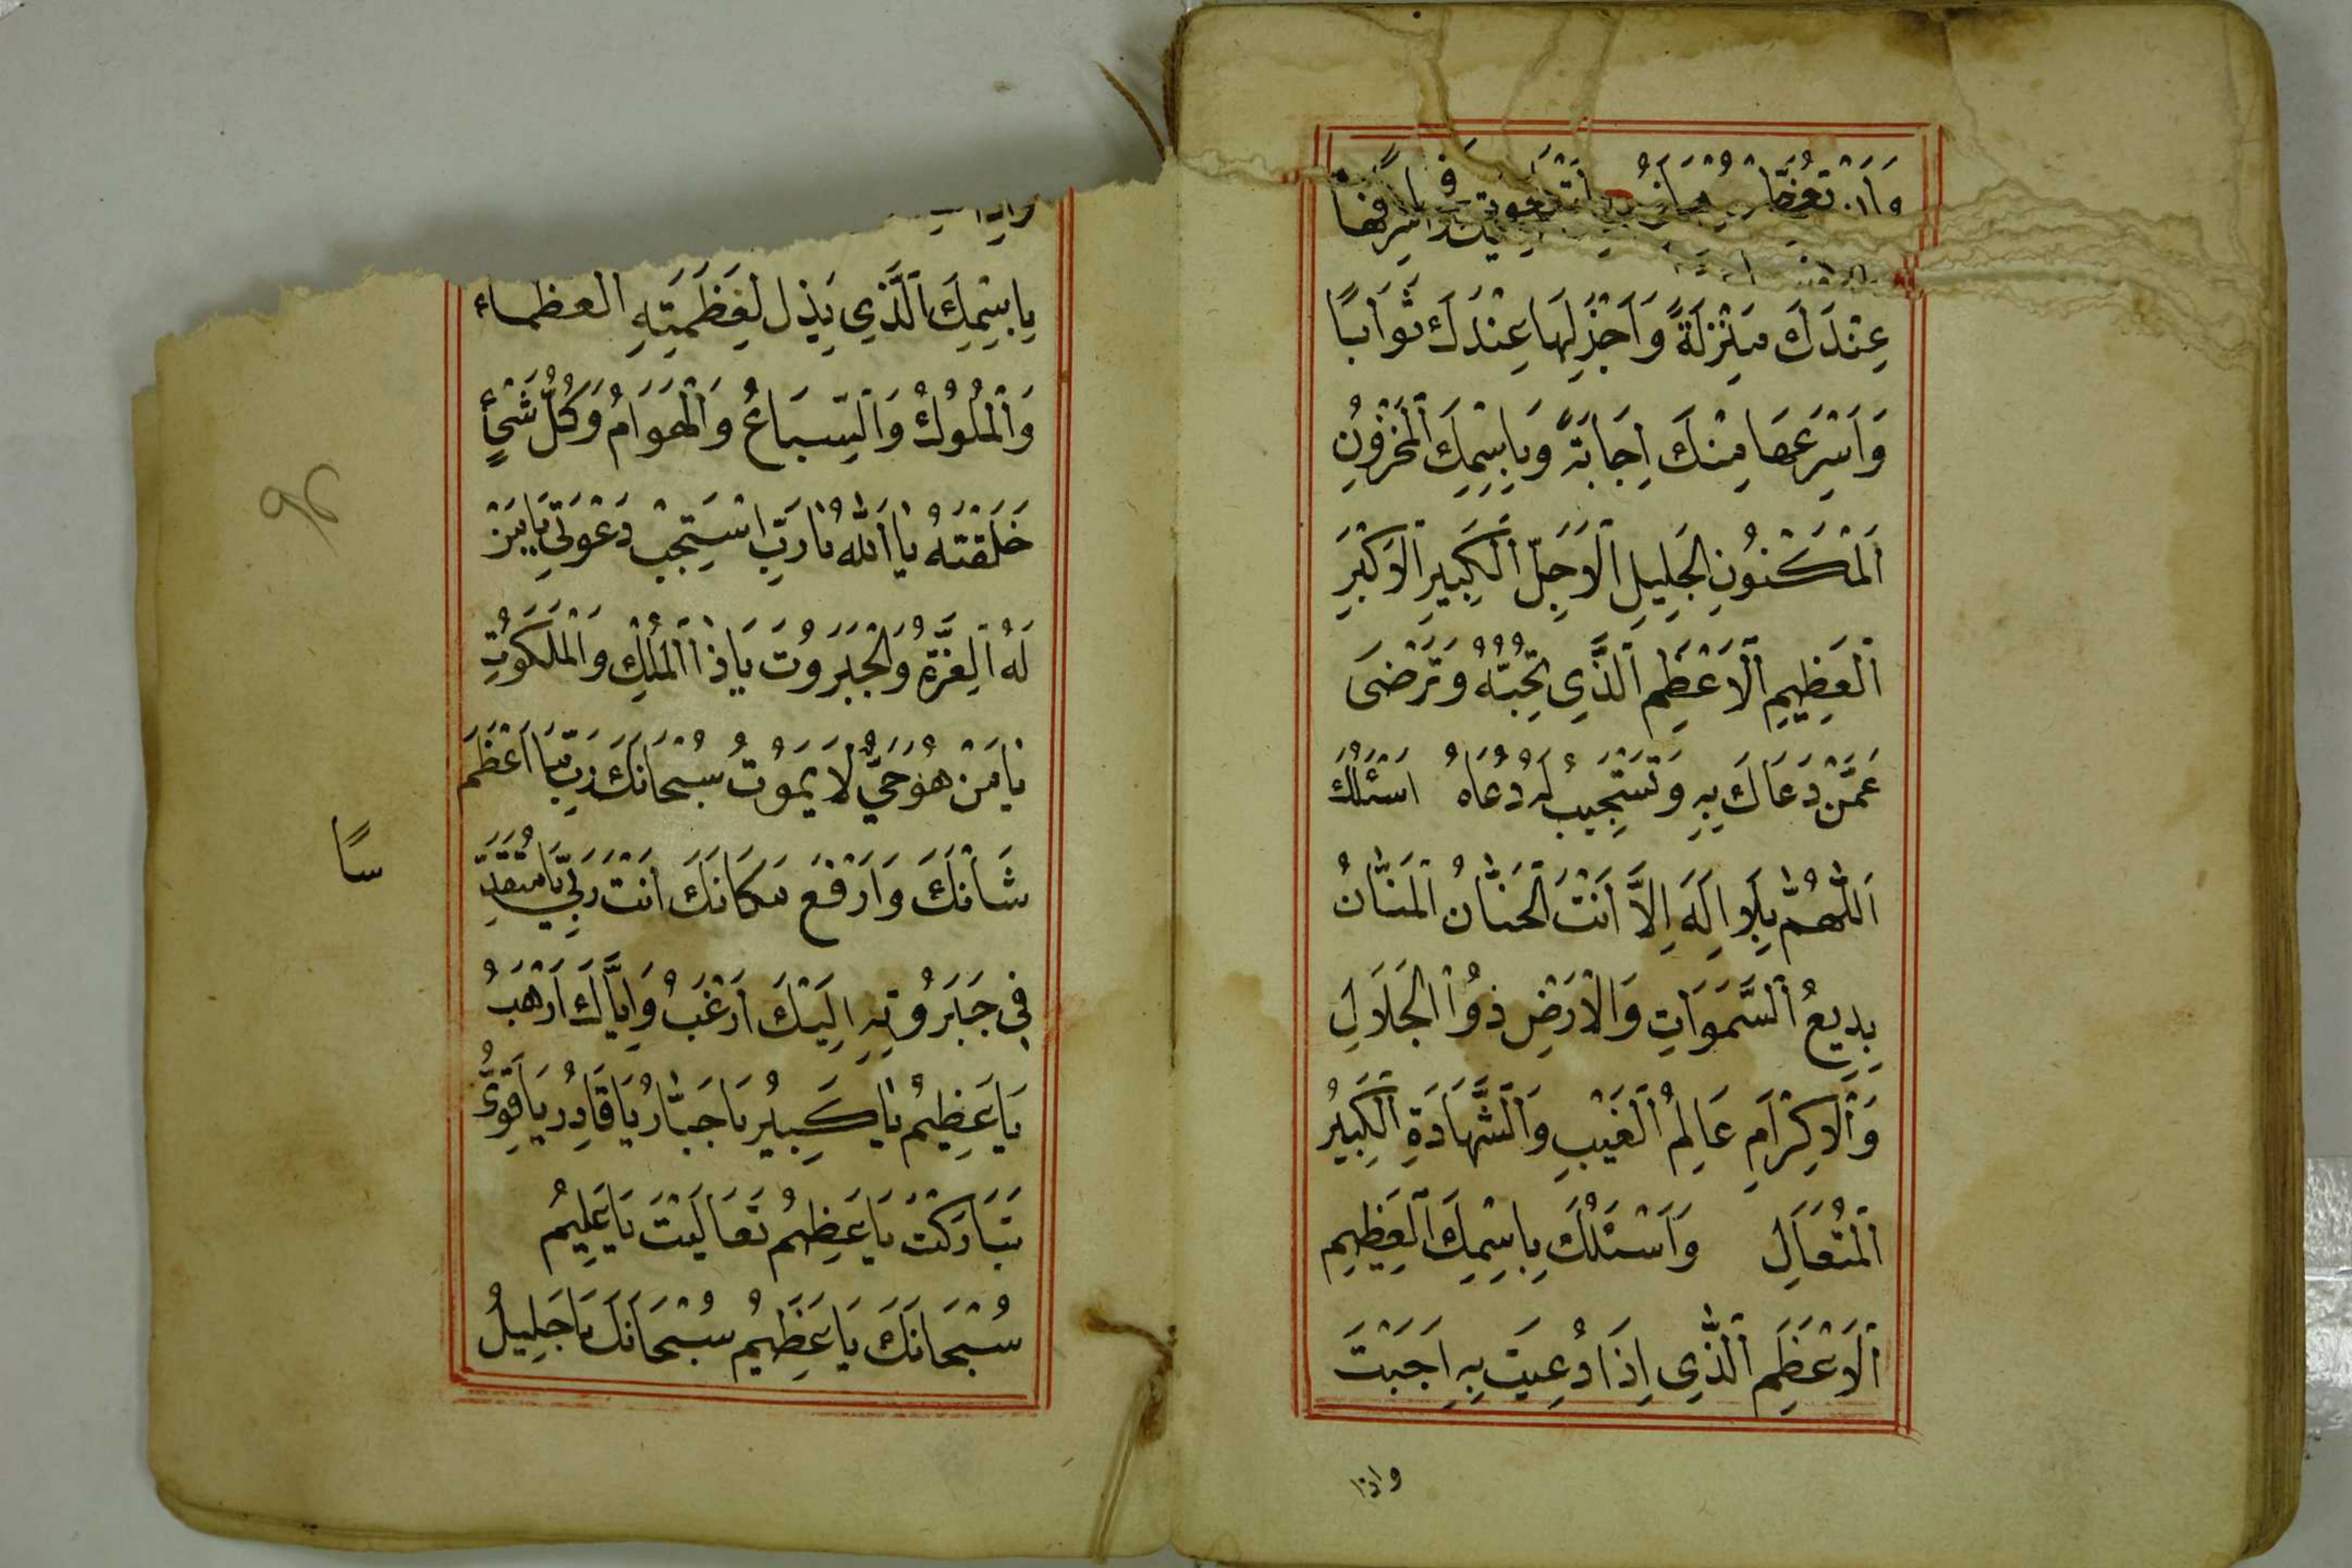 عِنْدَكَ مَنْزِلَةً وَاَجْزَلِهَا عِنْدَكَ ثَوَابًا
وَاَسْرَعِهَا مِنْكَ اِجَابَةً وَبِاِسْمِكَ الْمَخْزُونِ
اَلْمَكْنُونِ الْجَلِيلِ الْاَجَلِّ الْكَبِيرِ الْاَكْبَرِ
اَلْعَظِيمِ الْاَعْظَمِ الَّذِي تُحِبُّهُ وَتَرْضَى
عَمَّنْ دَعَاكَ بِهِ وَتَسْتَجِيبُ لَهُ دُعَاهُ اَسْئَلُكَ
اَللّٰهُمَّ بِلَا اِلَهَ اِلَّا اَنْتَ الْحَنَّانُ الْمَنَّانُ
بَدِيعُ السَّمَوَاتِ وَالْاَرْضِ ذُو الْجَلَالِ
وَالْاِكْرَامِ عَالِمُ الْغَيْبِ وَالشَّهَادَةِ الْكَبِيرُ
اَلْمُتَعَالِ وَاَسْئَلُكَ بِاِسْمِكَ الْعَظِيمِ
اَلْاَعْظَمِ الَّذِي اِذَا دُعِيتَ بِهِ اَجَبْتَ
واذا
بِاِسْمِكَ الَّذِي يَذِل لِعَظَمَتِهِ العظماء
وَالْمُلُوكُ وَالسِّبَاعُ وَالْهَوَامُ وَكُلُّ شَيْءٍ
خَلَقْتَهُ يَا اَللّٰهُ يَا رَبِّ اسْتَجِبْ دَعْوَتِي يَا مَنْ
لَهُ الْعِزَّةُ وَالْجَبَرُوتُ يَا ذَا الْمُلْكِ وَالْمَلَكُوتِ
يَا مَنْ هُوَ حَيٌّ لَا يَمُوتُ سُبْحَانَكَ رَبِّ مَا اَعْظَمَ
شَانَكَ وَاَرْفَعَ مَكَانَكَ اَنْتَ رَبِّي يَا مُتَقَدِّ
سًا
فِي جَبَرُوتِهِ اِلَيْكَ اَرْغَبُ وَاِيَّاكَ اَرْهَبُ
يَا عَظِيمُ يَا كَبِيرُ يَا جَبَّارُ يَا قَادِرُ يَا قَوِيُّ
تَبَارَكْتَ يَا عَظِيمُ تَعَالَيْتَ يَا عَلِيمُ
سُبْحَانَكَ يَا عَظِيمُ سُبْحَانَكَ يَا جَلِيلُ